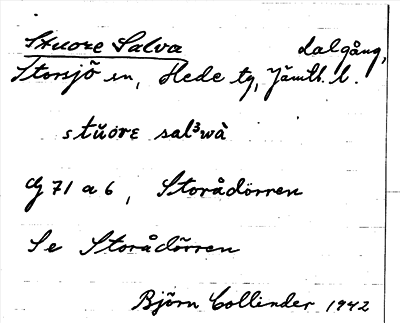 Stuore Salva dalgång,
Storsjö sn, Hede tg, Jämtl. l.
stŭorε sal³wà
G 71 a 6, Storådörren
Se Storådörren
Björn Collinder 1942